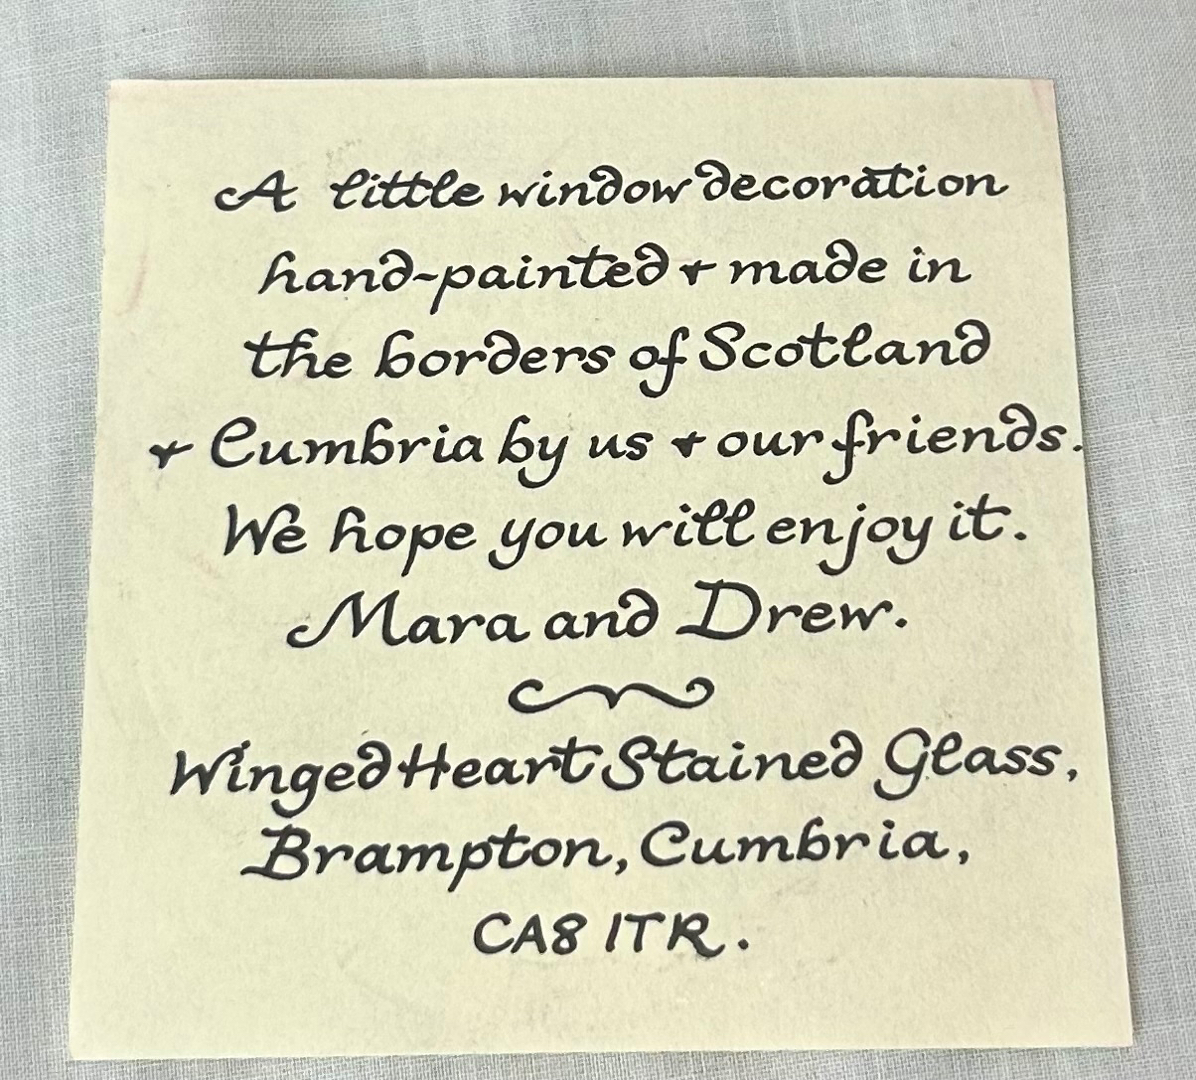 A little window decoration
hand-painted & made in
the borders of Scotland
& Cumbria by us & our friends.
We hope you will enjoy it.
Mara and Drew.
Winged Heart Stained Glass,
Brampton, Cumbria,
CA8 1TR.